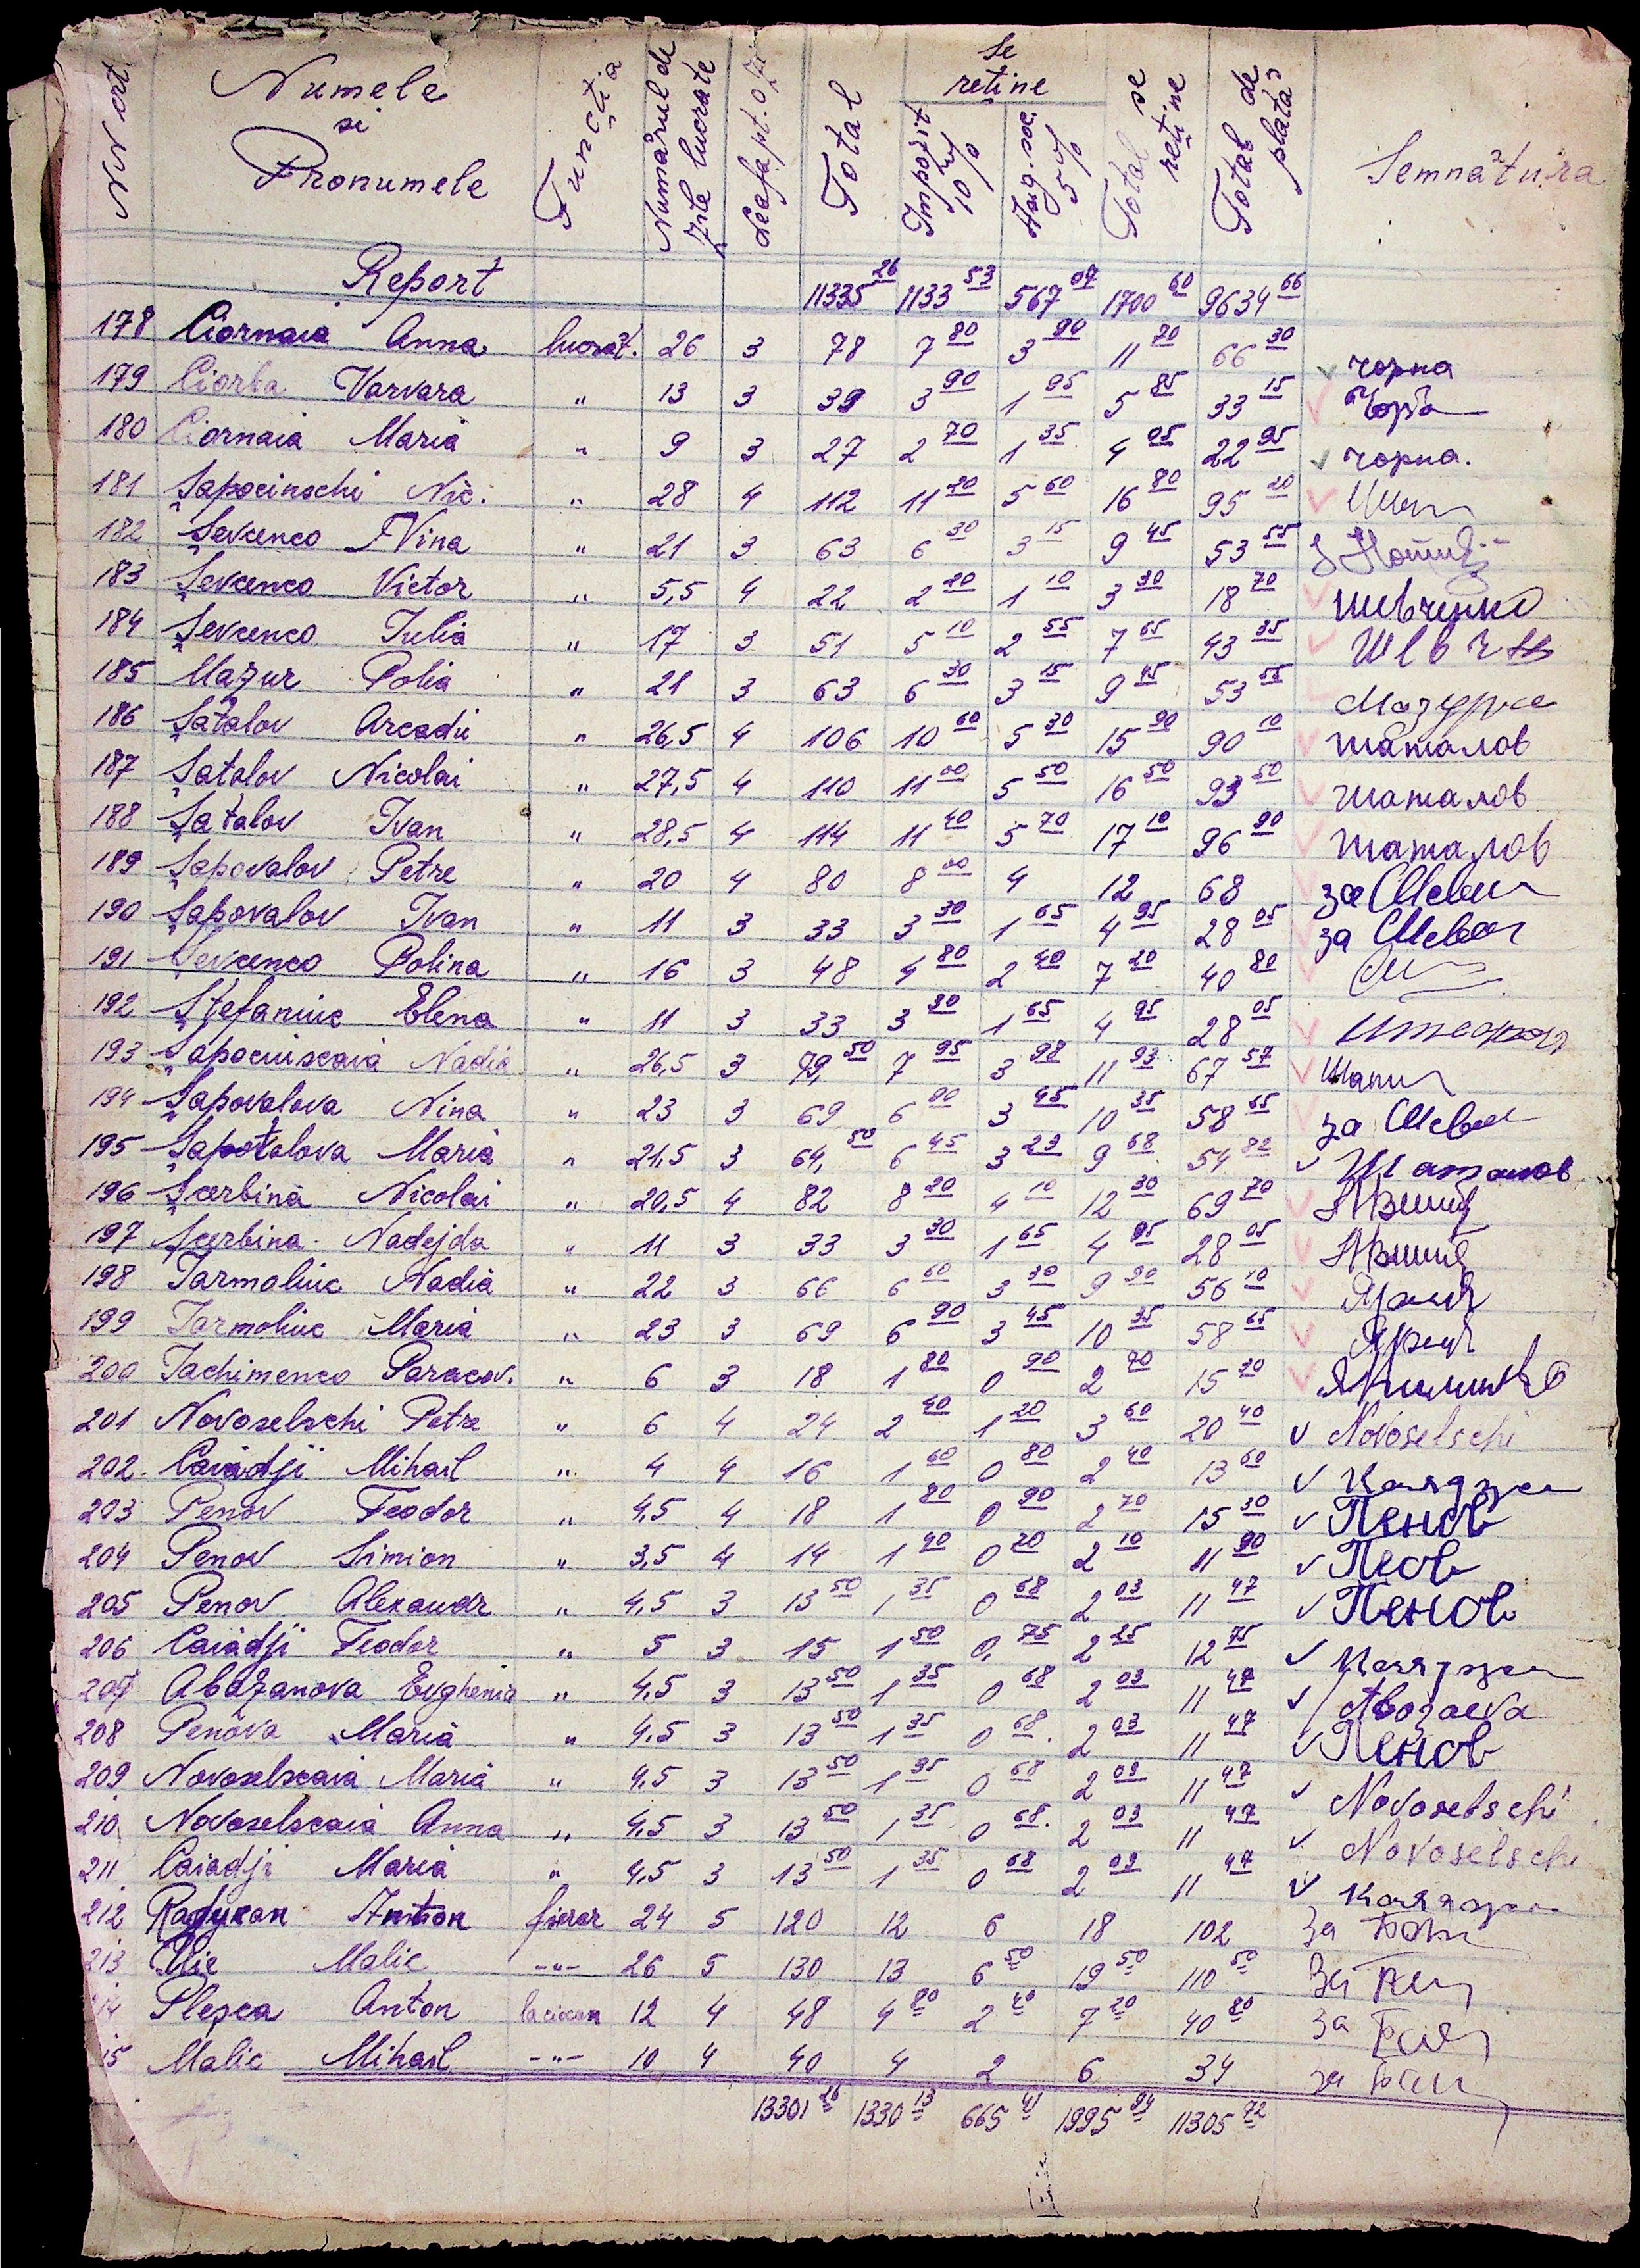 NN crt. Numele si Pronumele Funcția Numărul de zile lucrate Leafa pt. o zi Total Se reține Impozit 10% Asig. soc. 5% Total se reține Total de plată Semnătura
Report 11335 26 1133 53 567 07 1700 60 9634 66
178 Ciornaia Anna lucrăt. 26 3 78 7 80 3 90 11 70 66 30 чорна
179 Ciorba Varvara " 13 3 39 3 90 1 95 5 85 33 15 Чорба
180 Ciornaia Maria " 9 3 27 2 70 1 35 4 05 22 95 чорна.
181 Șapocinschi Nic. " 28 4 112 11 20 5 60 16 80 95 20
182 Șevcenco Nina " 21 3 63 6 30 3 15 9 45 53 55
183 Șevcenco Victor " 5,5 4 22 2 20 1 10 3 30 18 70 шевченко
184 Șevcenco Iulia " 17 3 51 5 10 2 55 7 65 43 35
185 Mazur Polia " 21 3 63 6 30 3 15 9 45 53 55
186 Șatalov Arcadii " 26,5 4 106 10 60 5 30 15 90 90 10 шаталов
187 Șatalov Nicolai " 27,5 4 110 11 00 5 50 16 50 93 50 шаталов
188 Șatalov Ivan " 28,5 4 114 11 40 5 70 17 10 96 90 шаталов
189 Șapovalov Petre " 20 4 80 8 00 4 12 68 за
190 Șapovalov Ivan " 11 3 33 3 30 1 65 4 95 28 05 за
191 Șevcenco Polina " 16 3 48 4 80 2 40 7 20 40 80
192 Ștefaniuc Elena " 11 3 33 3 30 1 65 4 95 28 05
193 Șapocinscaia Nadia " 26,5 3 79, 50 7 95 3 98 11 93 67 57
194 Șapovalova Nina " 23 3 69 6 90 3 45 10 35 58 65 за
195 Șapotalova Maria " 21,5 3 64, 50 6 45 3 23 9 68 54 82 Шаталов
196 Șcerbina Nicolai " 20,5 4 82 8 20 4 10 12 30 69 70
197 Șcerbina Nadejda " 11 3 33 3 30 1 65 4 95 28 05
198 Iarmoliuc Nadia " 22 3 66 6 60 3 30 9 90 56 10
199 Iarmoliuc Maria " 23 3 69 6 90 3 45 10 35 58 65
200 Iachimenco Paracov. " 6 3 18 1 80 0 90 2 70 15 30
201 Novoselschi Petre " 6 4 24 2 40 1 20 3 60 20 40 Novoselschi
202. Caiadji Mihail " 4 4 16 1 60 0 80 2 40 13 60
203 Penov Feodor " 4,5 4 18 1 80 0 90 2 70 15 30 Пенов
204 Penov Simion " 3,5 4 14 1 40 0 70 2 10 11 90 Пеов
205 Penov Alexandr " 4,5 3 13 50 1 35 0 68 2 03 11 47 Пенов
206 Caiadji Feodor " 5 3 15 1 50 0, 75 2 25 12 75
207 Abazanova Evghenia " 4,5 3 13 50 1 35 0 68 2 03 11 47
208 Penova Maria " 4,5 3 13 50 1 35 0 68 2 03 11 47 Пенов
209 Novoselscaia Maria " 4,5 3 13 50 1 35 0 68 2 03 11 47 Novoselschi
210 Novoselscaia Anna " 4,5 3 13 50 1 35 0 68. 2 03 11 47 Novoselschi
211 Caiadji Maria " 4,5 3 13 50 1 35 0 68 2 03 11 47
212 Anton fierar 24 5 120 12 6 18 102 За
213 Ilie Malic -"- 26 5 130 13 6 50 19 50 110 50 За
14 Pleșca Anton la ciocan 12 4 48 4 80 2 40 7 20 40 80 за
15 Malic Mihail -"- 10 4 40 4 2 6 34 за
13301 26 1330 13 665 41 1995 94 11305 72